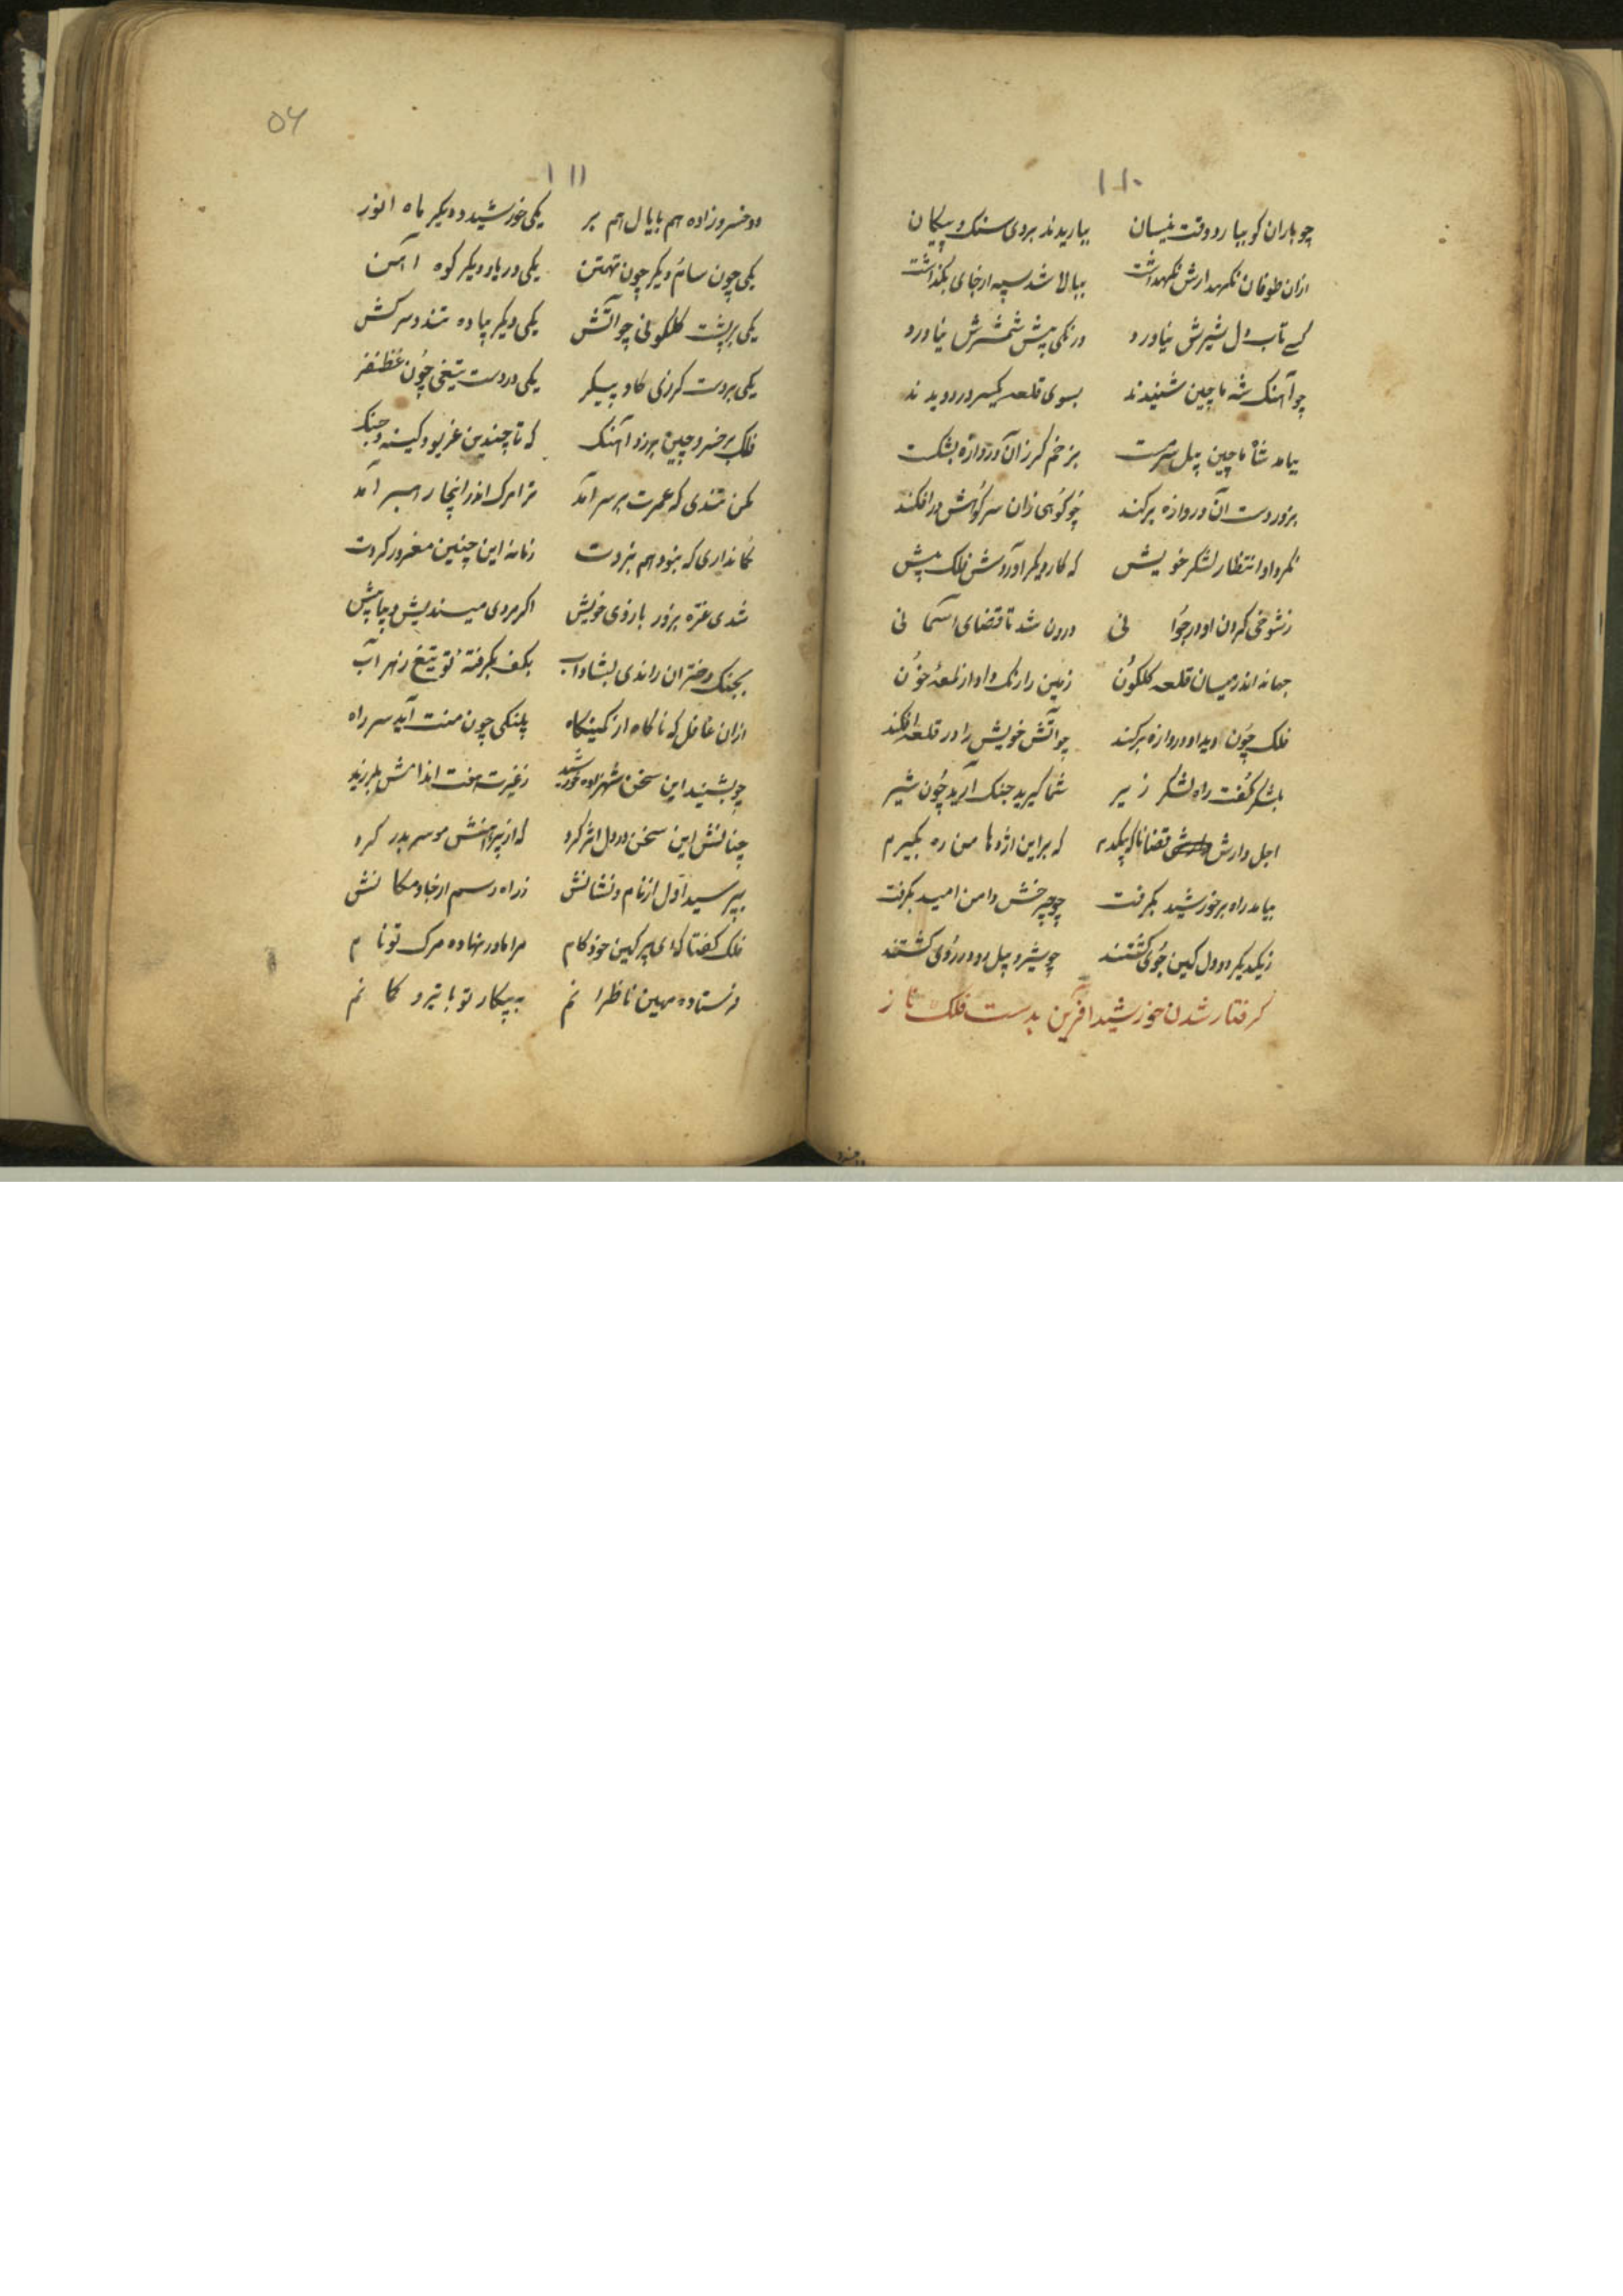 ۱۱۰
چو باران کو ببارد وقت نیسان بباریدند بروی سنک و پیکان
ازان طوفان نکهدارش نکهداشت ببالا شد سپه ارجای بکذاشت
کسے تاب دل شیرش نیاورد درنکی پیش شمشیرش نیاورد
چو آهنک شه ماچین شنیدند بسوی قلعه یکسر در دویدند
بیامد شاه ماچین پیل سرمست بزخم کرز آن دروازه بشکست
بزور دست آن دروازه برکند چو کوهی زان سر کوهش درافکند
نکرد او انتظار لشکر خویش که کار دیکر آوردش فلک پیش
ز شوخی کردن او در جوانی درون شد تا قضای اسمانی
جهانه اندر میان قلعه کلکون زمین را رنک داد از لمعهٔ خون
فلک چون دید او دروازه برکند چو آتش خویش را در قلعه افکند
بلشکر کفت راه لشکر زیر شما کیرید جنک آرید چون شیر
اجل دارش قضانا که پیکدم که بر این اژدها من ره بکیرم
بیامد راه بر خورشید بکرفت چو چرخش دامن امید بکرفت
زیکدیکر دو دل کین جوی کشتند چو شیر و پیل رو در روی کشتند
کرفتار شدن خورشید آفرین بدست فلک ناز
دو خسرو
۵۶
۱۱۱
دو خسروزاده هم بایال هم بر یکی خورشید و دیکر ماه انور
یکی چون سام و دیکر چون تهمتن یکی دریا و دیکر کوه آهن
یکی بر پشت کلکونی چو آتش یکی دیکر پیاده تند و سرکش
یکی بردست کرزی کاو پیکر یکی در دست تیغی چون غظنفر
فلک بر خسرو چین برزد آهنک که تا چندین غریو و کینه و جنک
مکن تندی که عمرت بر سر آمد ترا مرک اندر اینجا رهبر آمد
کمانداری که نبود هم نبردت زمانه این چنین مغرور کردت
شدی غره بزور بازوی خویش اکر مردی میندیش و بیا پیش
بجنک دختران راندی بشاداب بکف بکرفتهٔ تو تیغ زهرآب
ازان غافل که ناکاه از کمینکاه پلنکی چون منت آید سر راه
چو بشنید این سخن شهزاده خورشید زغیرت هفت اندامش بلرزید
چنانش این سخن در دل اثر کرد که از پیراهنش مو سر بدر کرد
بپرسید اول از نام و نشانش ز راه و رسم از جا و مکانش
فلک کفتا که ای پر کین خودکام مرا مادر نهاده مرک تو نام
فرستاده مهین ناظرانم به پیکار تو با تیر و کمانم